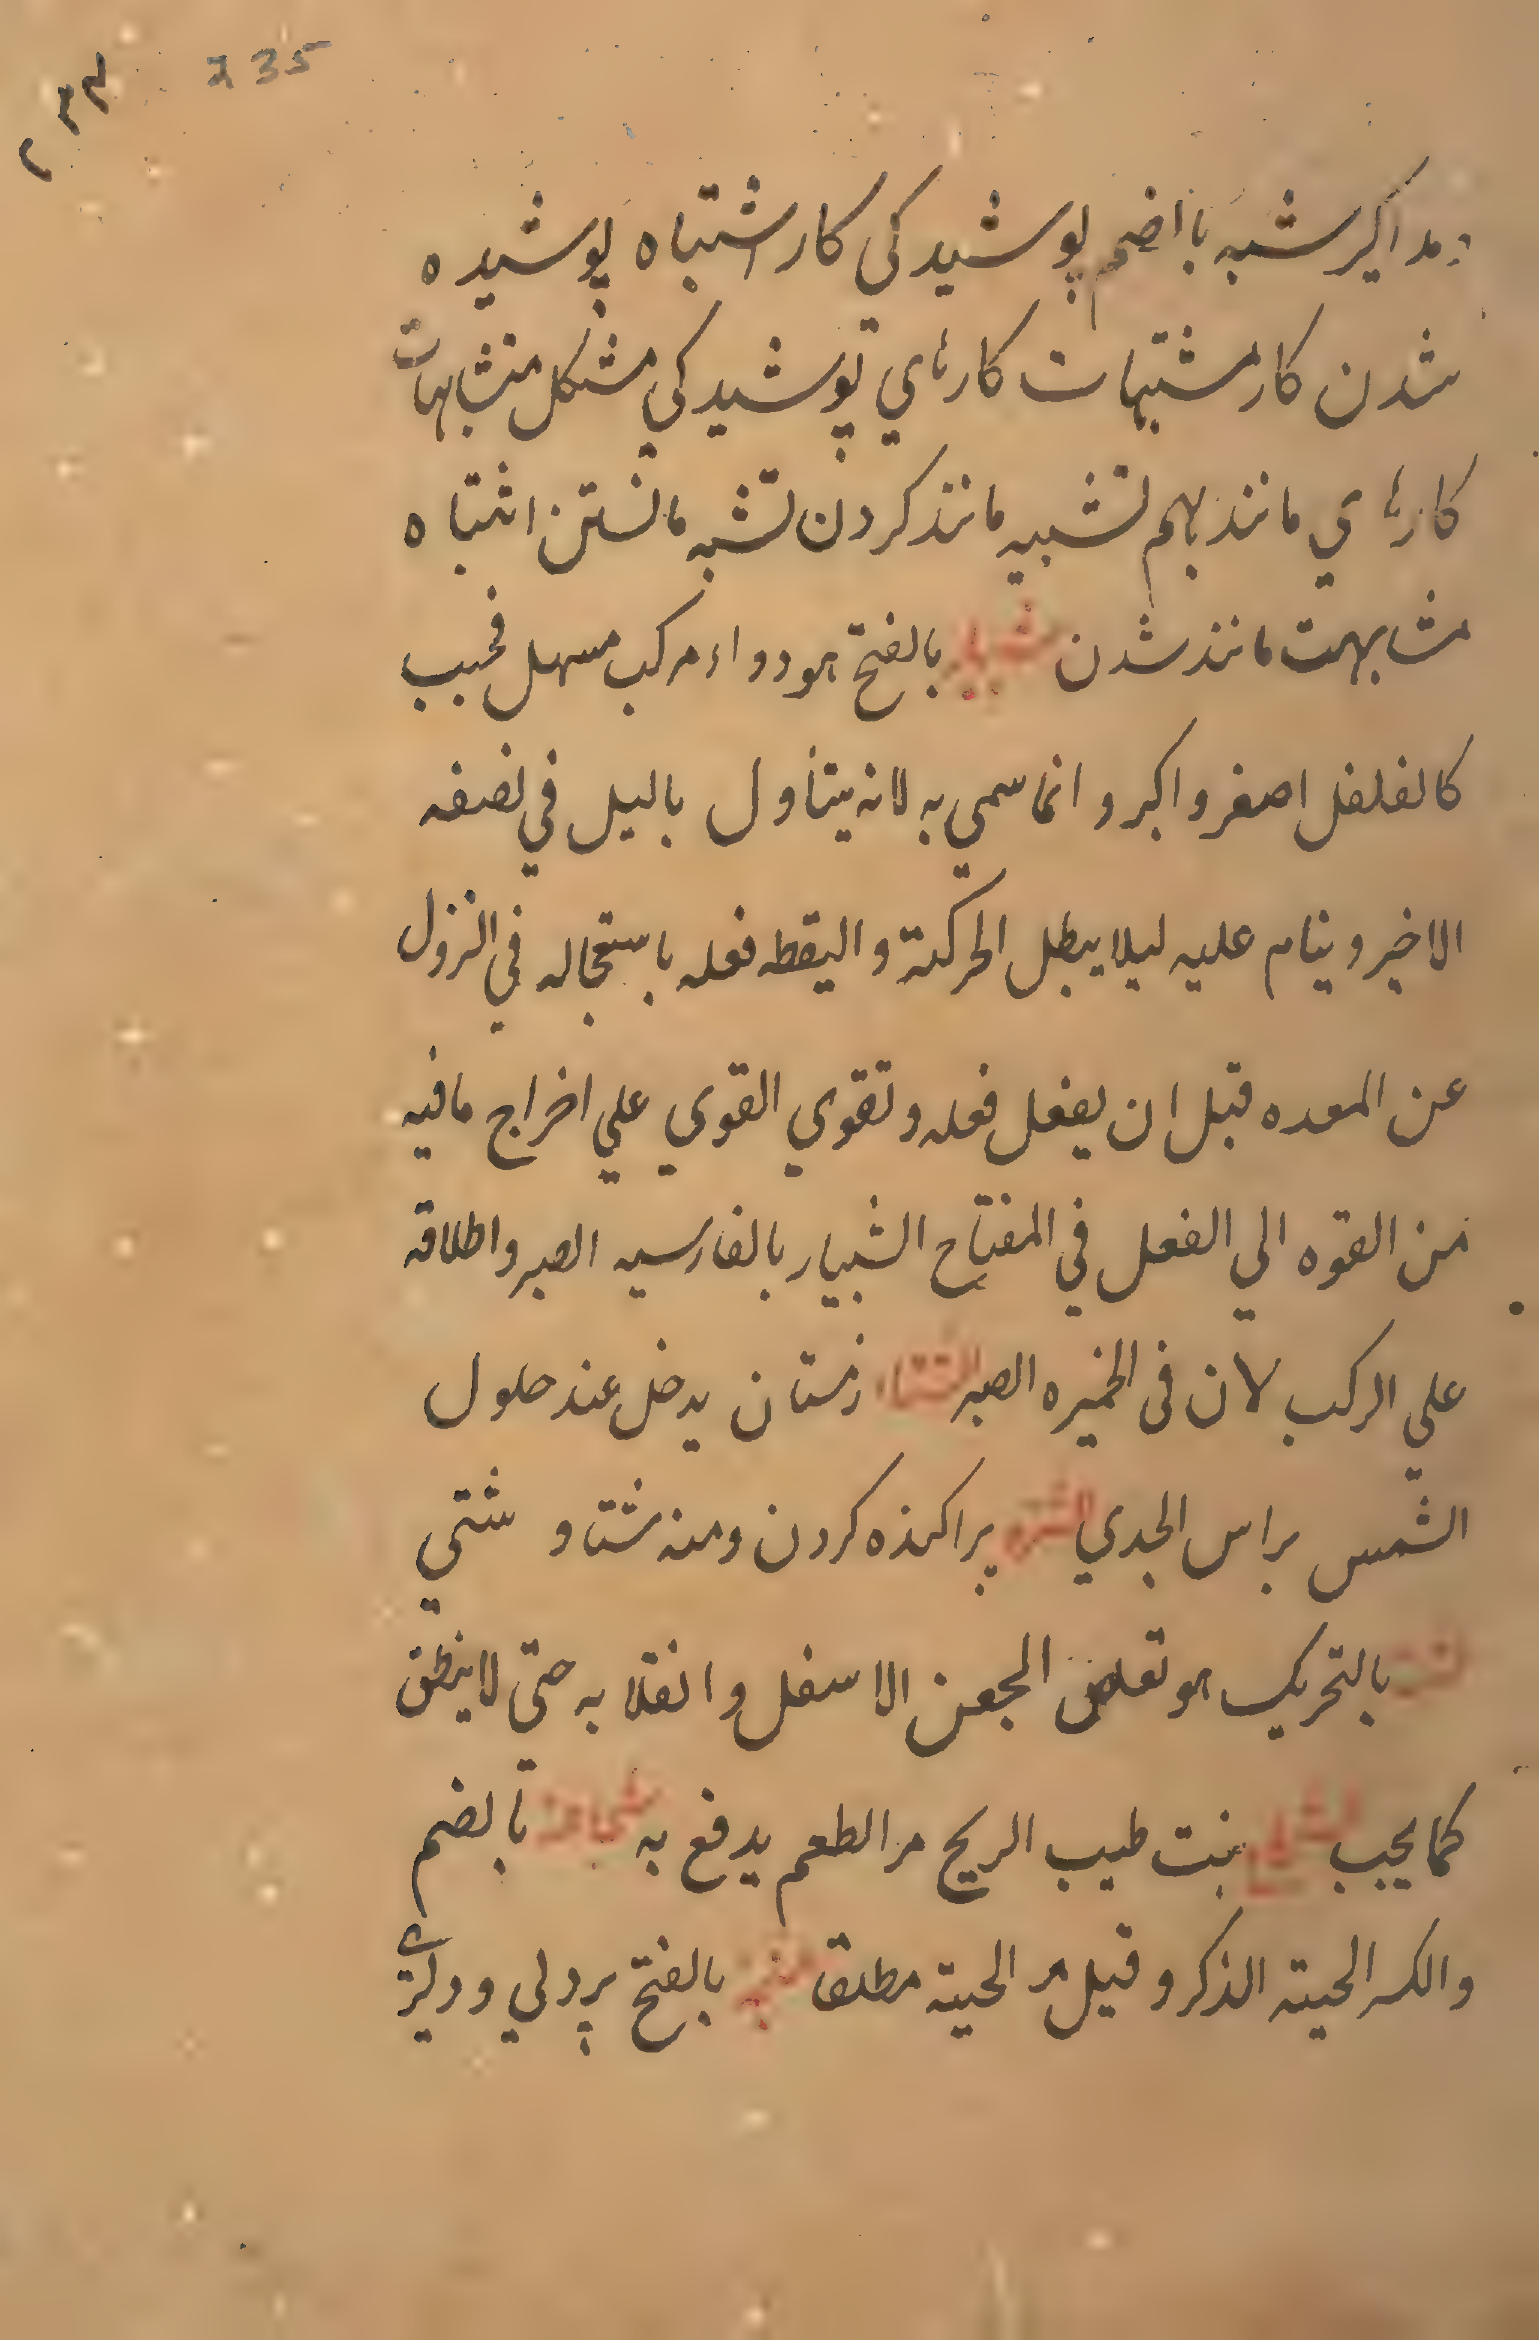 235
۲۳۴
مد اكير شبه بااضم پوشيدكي كار اشتباه پوشيده
شدن كار مشتبهات كارهاي پوشيدكي مشكل متشابهات
كارهاي مانند بهم تشبيه مانند كردن تشبه مانستن اشتباه
مشابهت مانند شدن شبيار بالفتح هو دواء مركب مسهل فحبب
كالفلفل اصغر واكبر و انما سمي به لانه يتناول باليل في نصفه
الاخير وينام عليه ليلا يبطل الحركة و اليقطه فعله باستعجاله في النزول
عن المعده قبل ان يفعل فعله و تقوي القوي علي اخراج مافيه
من القوه الي الفعل في المفتاح الشبيار بالفارسيه الصبر و اطلاقه
علي المركب لان في الخميره الصبر الشتاء زمستان يدخل عند حلول
الشمس براس الجدي پراكنده كردن ومنه شتا و شتي
بالتحريك هو تقلص الجفن الاسفل و انقلابه حتي لا ينطبق
كما يجب نبت طيب الريح مر الطعم يدفع به شجاعة بالضم
والكسر الحية الذكر و قيل مر الحية مطلقا بالفتح پردلي و دليري